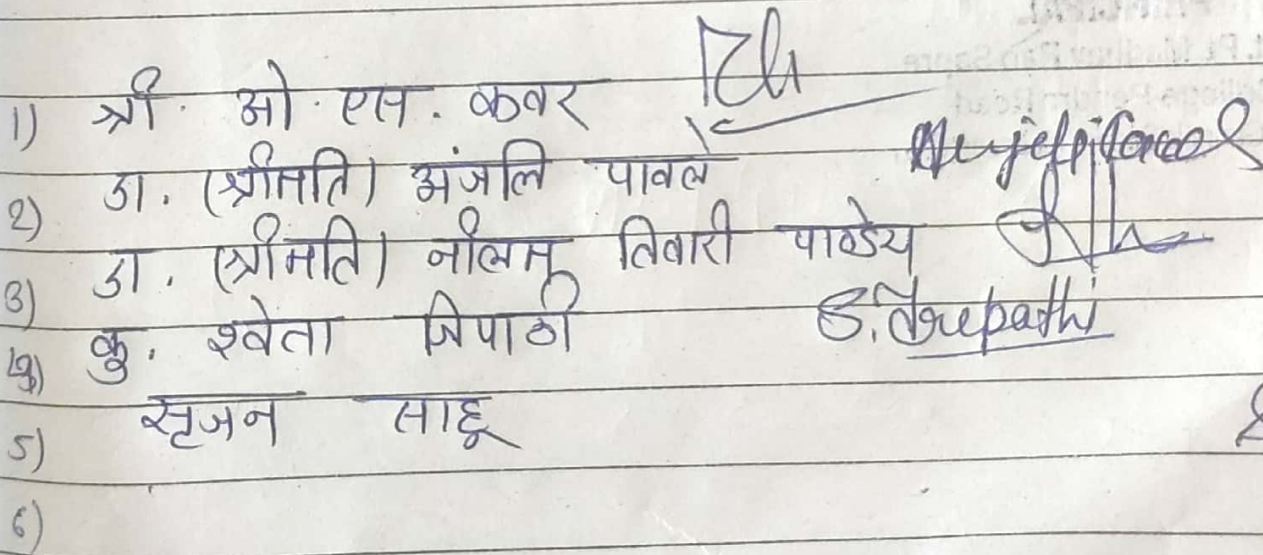 1) श्री. ओ. एस. कवर
2) डा. (श्रीमति) अंजलि पावले
3) डा. (श्रीमति) नीलम तिवारी पाण्डेय
4) कु. श्वेता त्रिपाठी S. Trepathi
5) सृजन साहू
6)